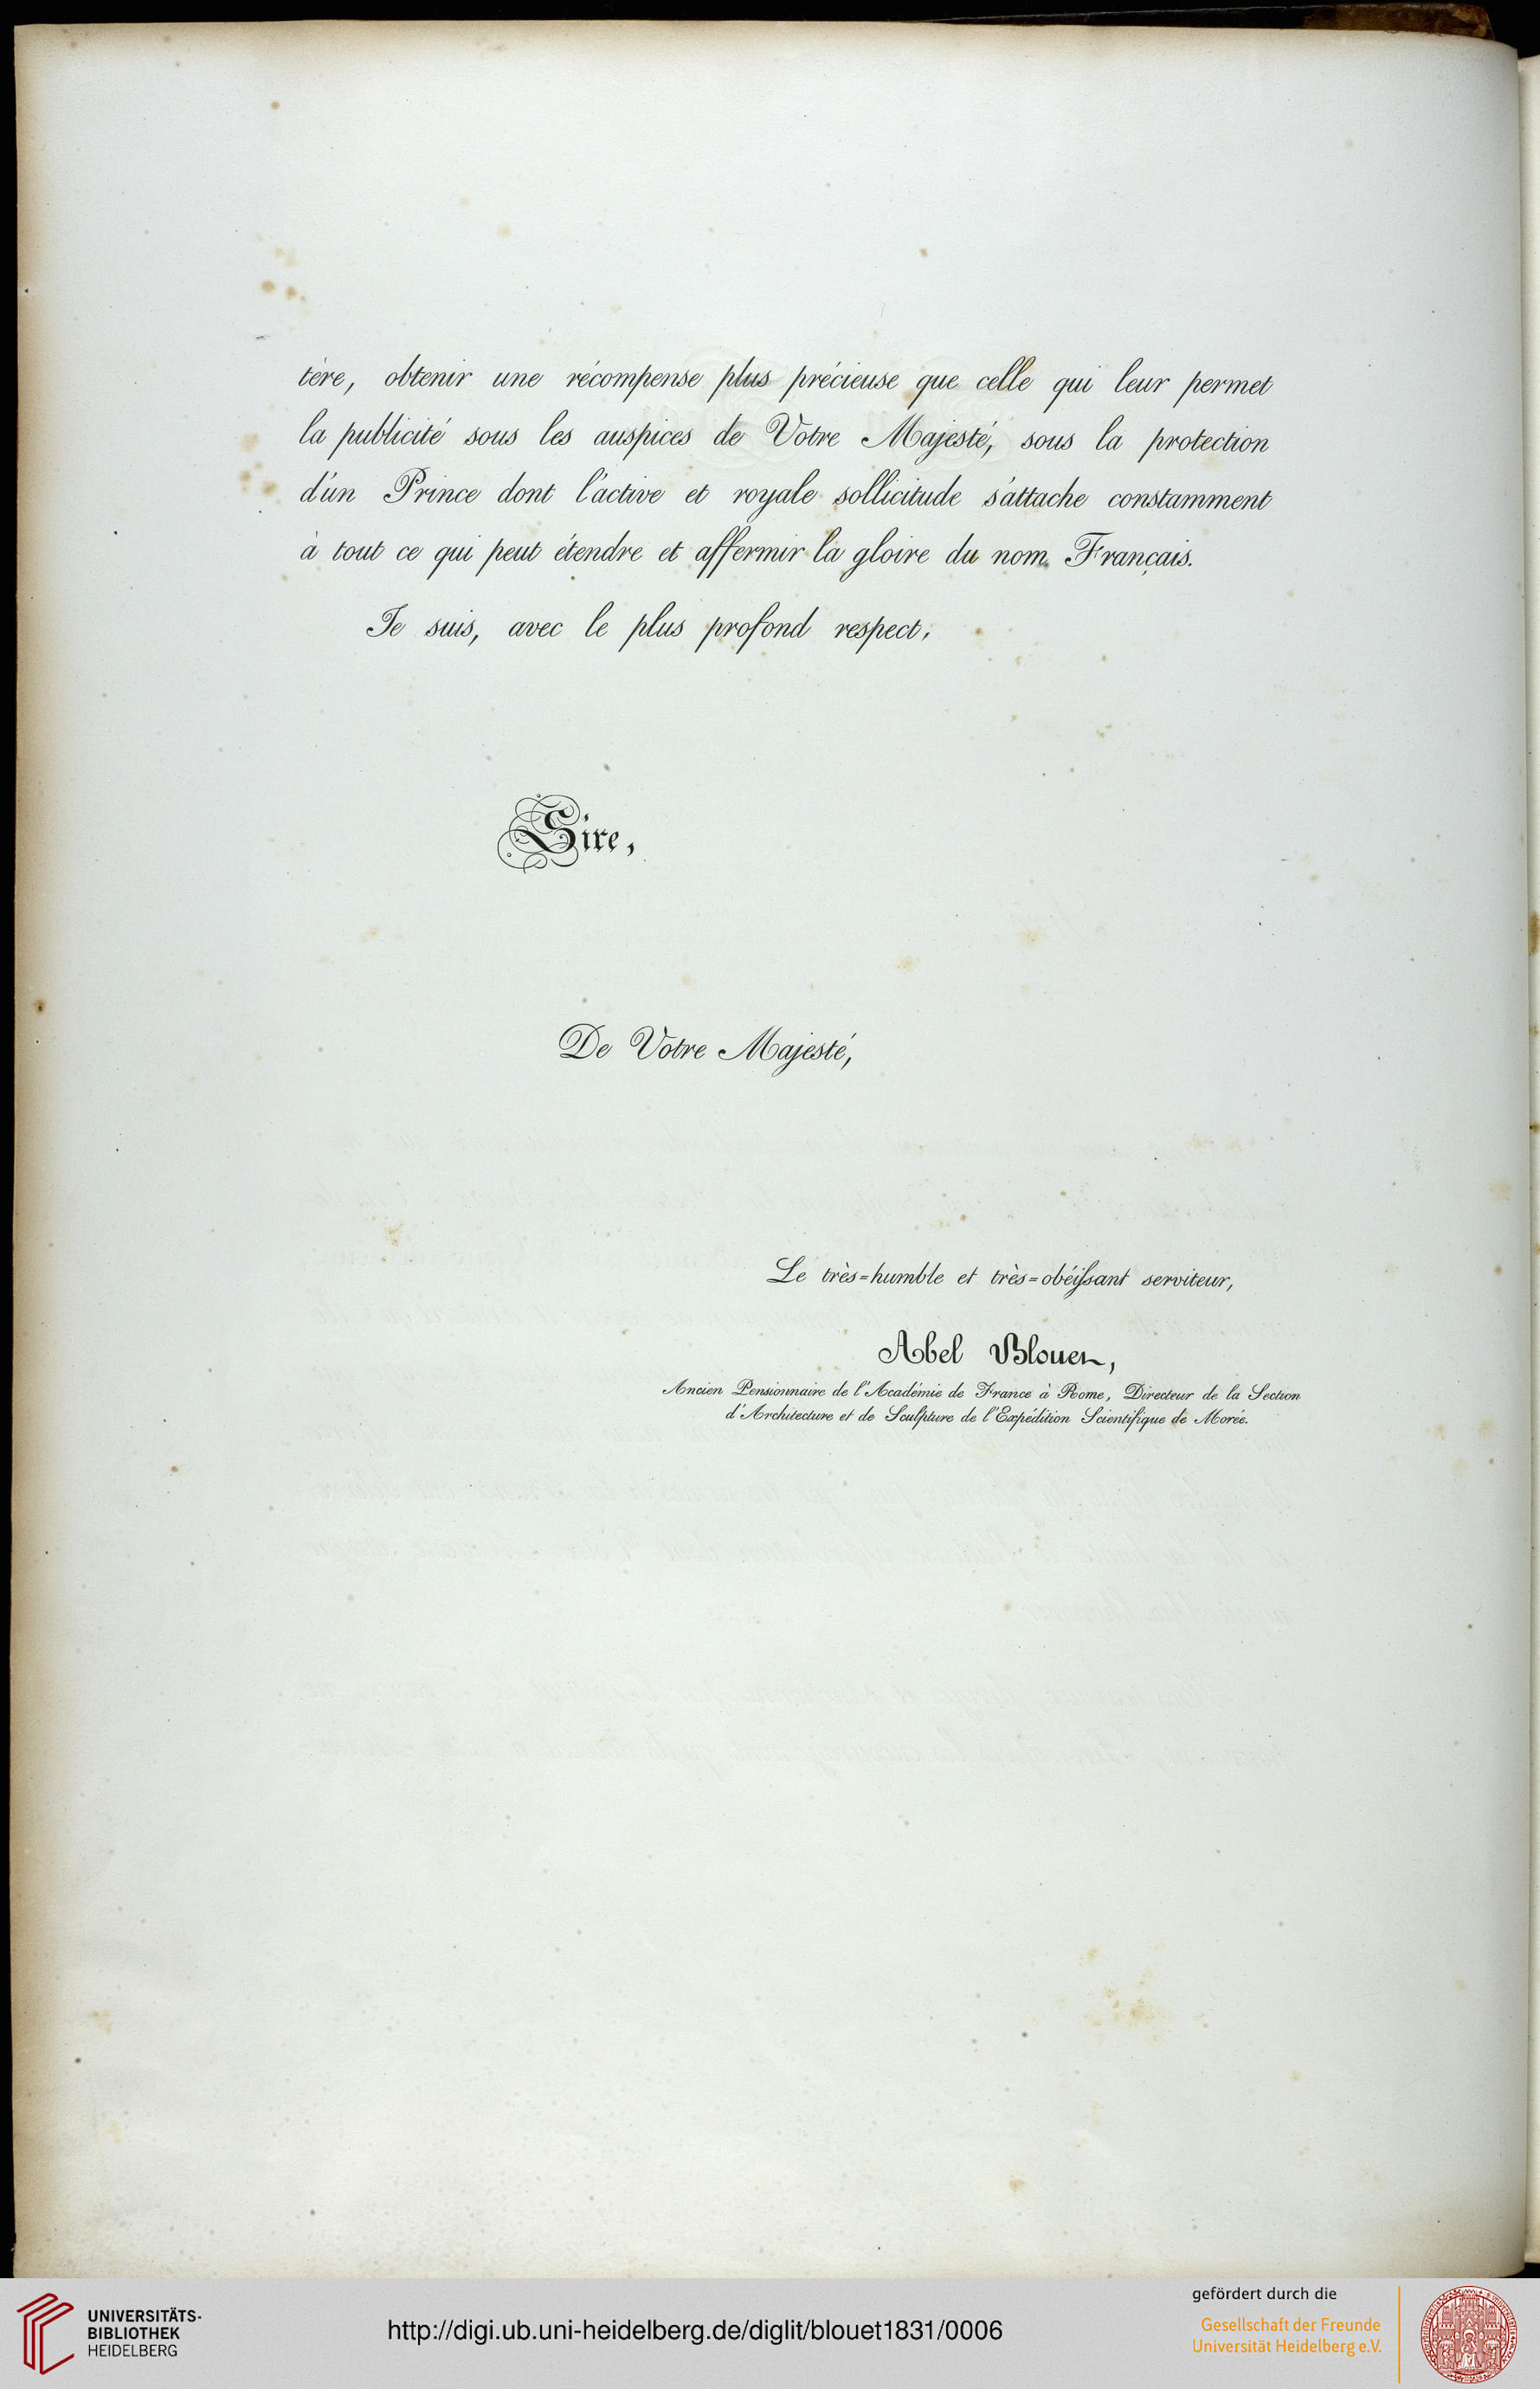 tère, obtenir une récompense plus précieuse que celle qui leur permet
la publicité sous les auspices de Votre Majesté, sous la protection
d'un Prince dont l'active et royale sollicitude s'attache constamment
à tout ce qui peut étendre et affermir la gloire du nom Français.
Je suis, avec le plus profond respect,
Sire,
De Votre Majesté,
Le très=humble et très=obéiſsant serviteur,
Abel Blouet,
Ancien Pensionnaire de l'Académie de France à Rome, Directeur de la Section
d'Architecture et de Sculpture de l'Expédition Scientifique de Morée.
UNIVERSITÄTS-
BIBLIOTHEK
HEIDELBERG
http://digi.ub.uni-heidelberg.de/diglit/blouet1831/0006
gefördert durch die
Gesellschaft der Freunde
Universität Heidelberg e.V.